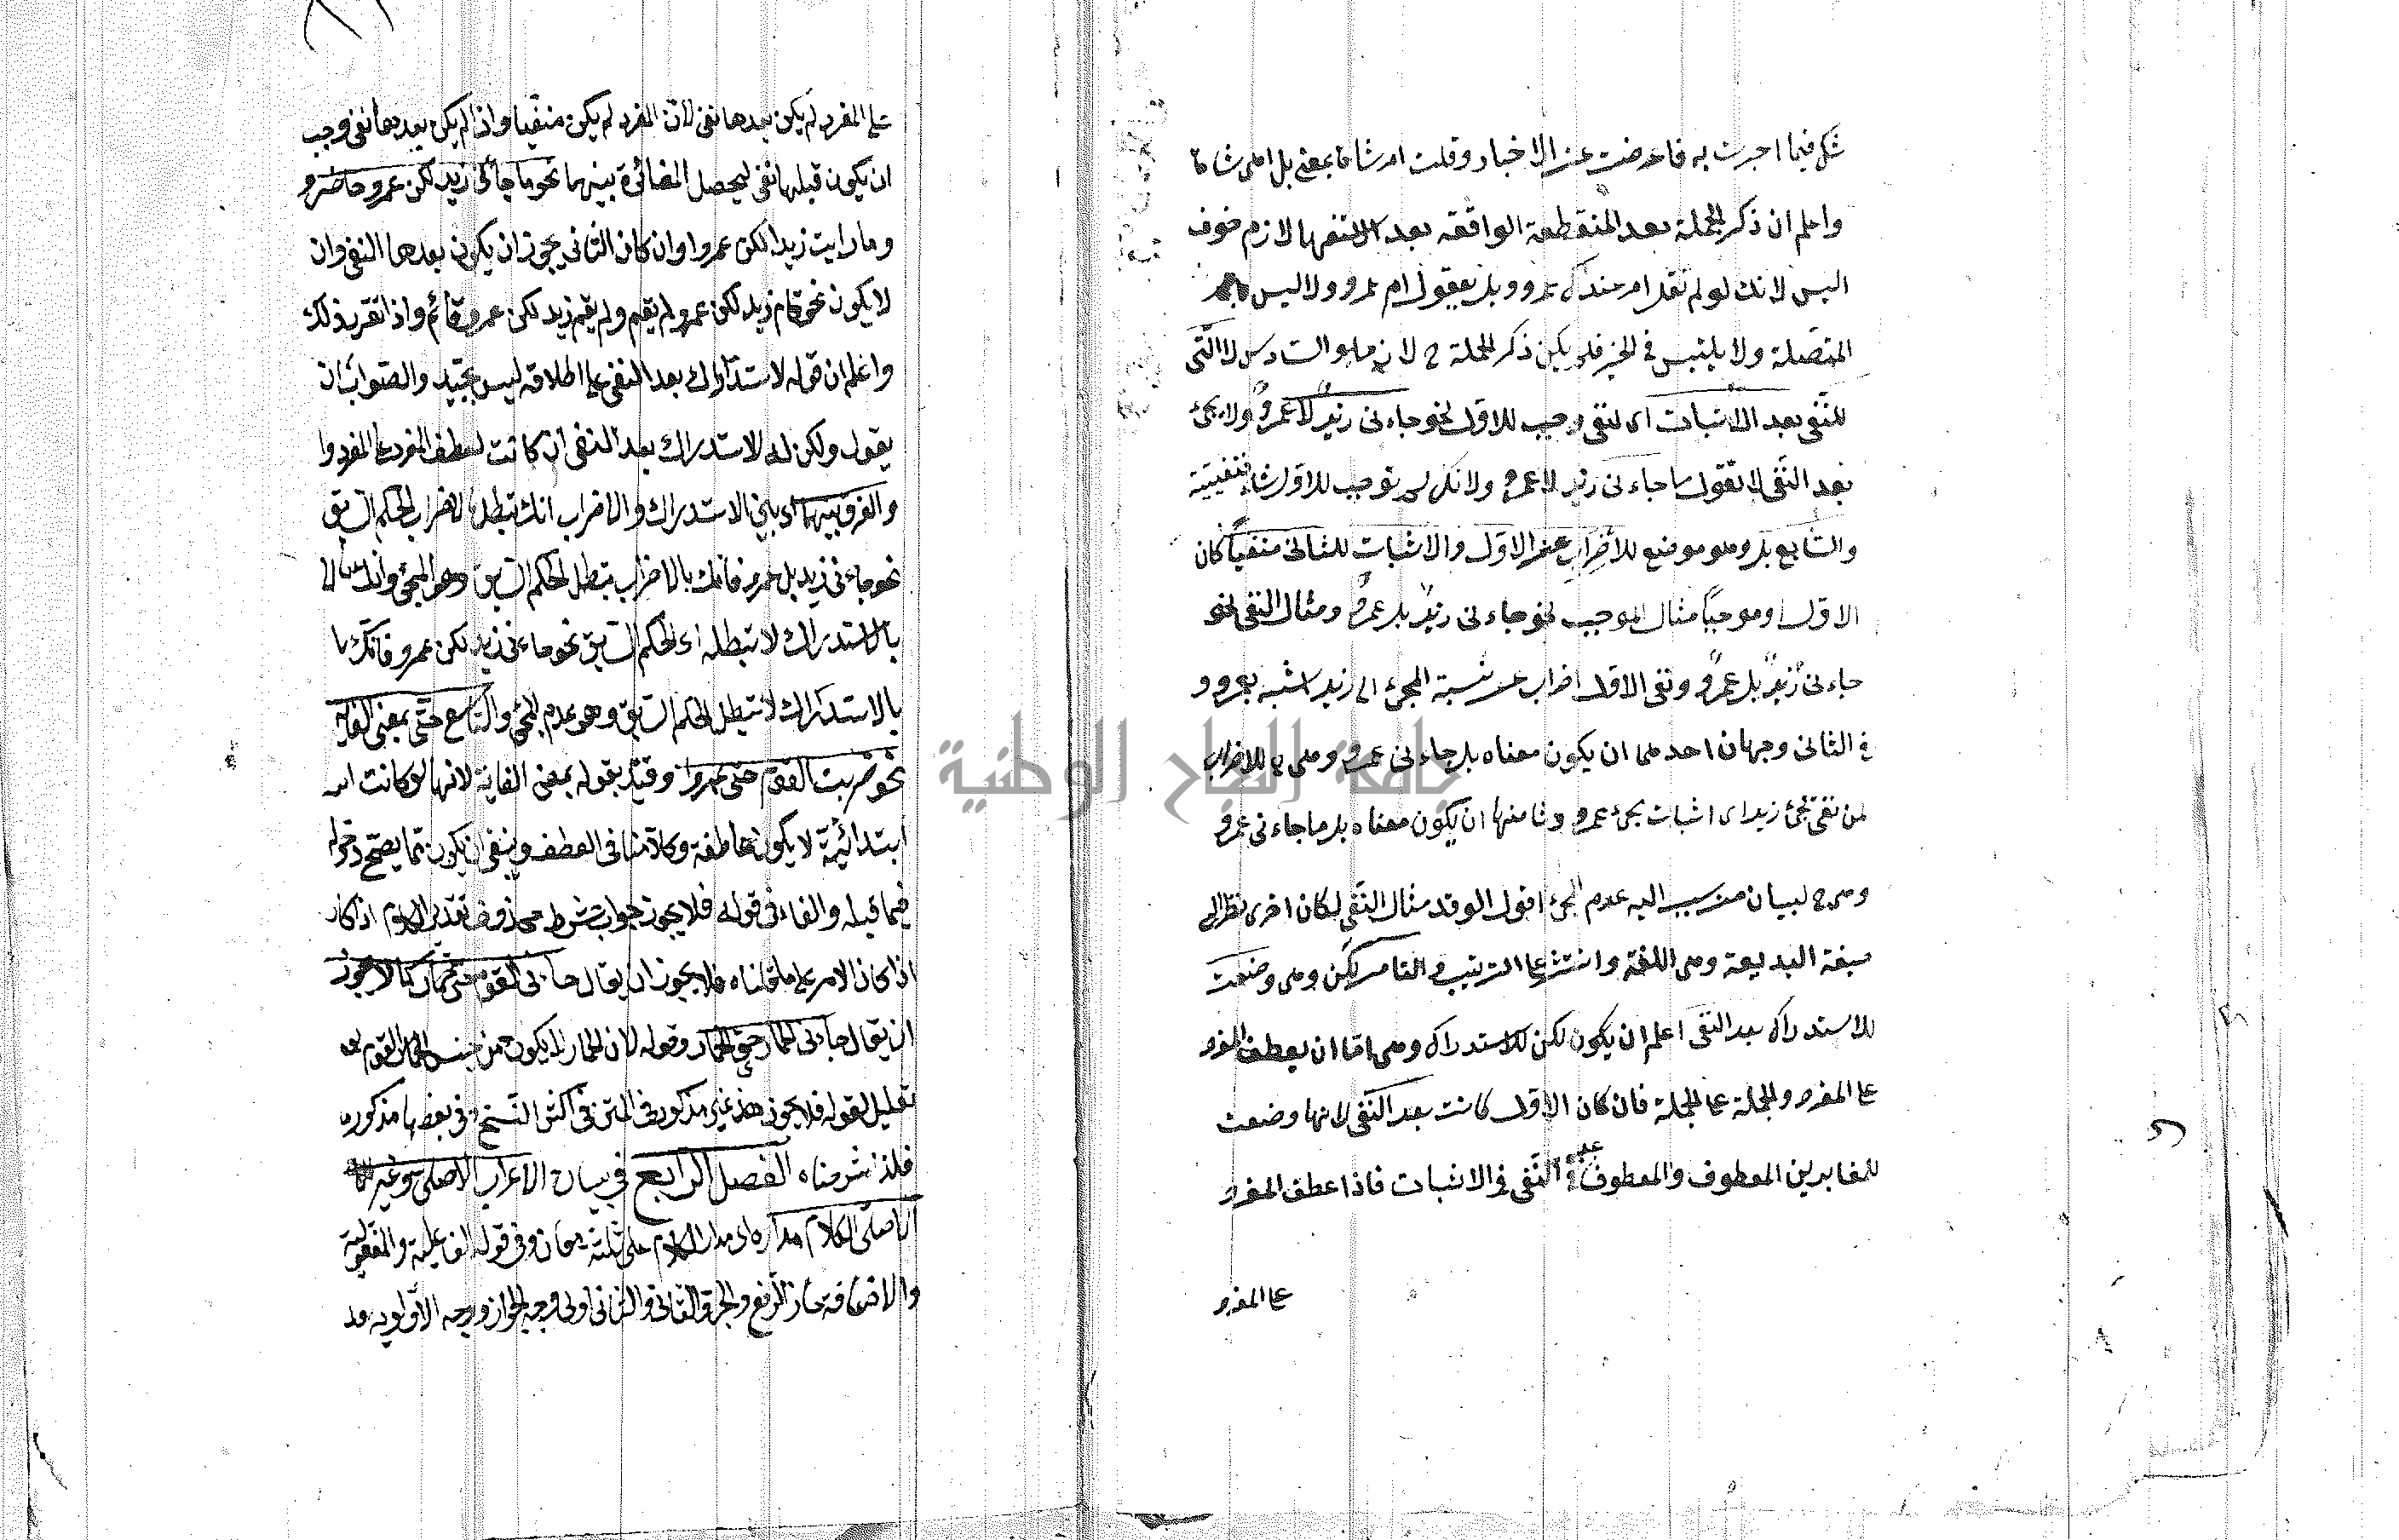 شك فيما اخبرت به فاعرضت عن الاخبار وقلت ام شاة بمعنى بل اهى شاة
واعلم ان ذكر الجملة بعد المنقطعة الواقعة بعد الاستفهام لازم خوف
اليس لانك لو لم تقل ام عندك عمرو وبل تقول ام عمرو ولا ليس
المتصلة ولا يلتبس في الخبر فلم يكن ذكر الجملة ح لازما والسادس لا التى
للنفى بعد الاثبات اى لنفى وجب للاول نحو جاءنى زيد لا عمرو ولا يجئ
بعد النفى لا تقول ما جاءنى زيد لا عمرو ولانك لم توجب للاول شيأ فتنفيه
والسابع بل وهو موضع للاضراب عن الاول والاثبات للثانى منفيا كان
الاول او موجبا مثال الموجب نحو جاءنى زيد بل عمرو ومثال النفى نحو
جاءنى زيد بل عمرو ونفى الاول اضراب عن نسبة المجئ الى زيد بعمرو و
في الثانى وجهان احدهما ان يكون معناه بل جاءنى عمرو وهى ح للاضراب
من نفى مجئ زيد اى اثبات مجئ عمرو وثانيهما ان يكون معناه بل ما جاءنى عمرو
وهى ح لبيان من نسب اليه عدم المجئ اقول لو قدم مثال النفى لكان احرى نظرا الى
البديعة وهى اللف والنشر على الترتيب والثامن لكن وهى وضعت
للاستدراك بعد النفى اعلم ان يكون لكن للاستدراك وهى اما ان يعطف المفرد
على المفرد والجملة على الجملة فان كان الاول كانت بعد النفى لانها وضعت
للمغايرين المعطوف والمعطوف عليه في النفى والاثبات فاذا عطف المفرد
على المفرد
على المفرد لم يكن بعدها نفى لان المفرد لم يكن منفيا واذا لم يكن بعدها نفى وجب
ان يكون قبلها نفى ليحصل المغائرة بينهما نحو ما جائنى زيد لكن عمرو حاضر و
وما رايت زيدا لكن عمروا وان كان الثانى يجوز ان يكون بعدها النفى وان
لا يكون نحو قام زيد لكن عمرو لم يقم ولم يقم زيد لكن عمرو قائم واذا تقرر ذلك
واعلم ان قوله لاستدراك بعد النفى على اطلاقه ليس بجيد والصواب ان
يقول ولكن للاستدراك بعد النفى ان كانت لعطف المفرد على المفرد وا
والفرق بينهما اى بين الاستدراك والاضراب انك تبطل بالاضراب الحكم السابق
نحو جاءنى زيد بل عمرو فانك بالاضراب تبطل الحكم السابق وهو المجئ وانك
بالاستدراك لا تبطله اى الحكم السابق نحو ما جاءنى زيد لكن عمرو فانك
بالاستدراك لا تبطل الحكم السابق وهو عدم المجئ والتاسع حتى بمعنى الغاية
نحو ضربت القوم حتى عمروا وقيد بقوله بمعنى الغاية لانها لو كانت
ابتدائية لا يكون عاطفة وكلامنا في العطف وينبغى ان يكون مما يصح دخوله
فيما قبله والفاء في قوله فلا يجوز جواب شرط محذوف تقدير الكلام اذا كان
اذا كان الامر على ما قلناه فلا يجوز ان يقال جاءنى القوم حتى حمار كما لا يجوز
ان يقال جاءنى الحمار حتى الحمار وقوله لان الحمار لا يكون من جنس القوم
تعليل لقوله فلا يجوز هذا غير مذكور في المتن في اكثر النسخ وفي بعضها مذكوره
فلذا شرحناه الفصل الرابع في بيان الاعراب الاصلى وغير
الاصلى الكلام مداره اى مدار الكلام على ثلثة معان وفي قوله الفاعلية والمفعولية
والاضافة جاز الرفع والجر والثانى اولى وجه الجواز ووجه الاولوية